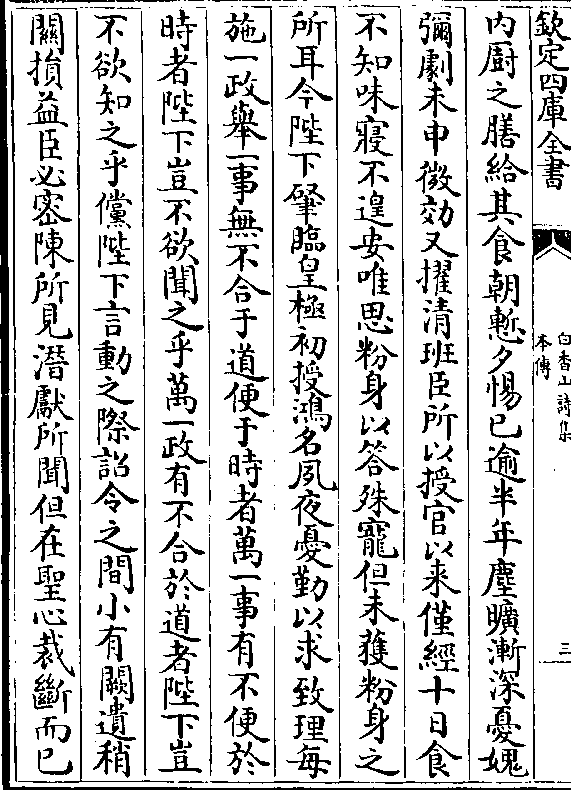 欽定四庫全書
白香山詩集
本傳
三
内厨之膳給其食朝慙夕惕已逾半年塵曠漸深憂媿
彌劇未申微効又擢清班臣所以授官以来僅經十日食
不知味寢不遑安唯思粉身以答殊寵但未獲粉身之
所耳今陛下肇臨皇極初授鴻名夙夜憂勤以求致理每
施一政舉一事無不合于道便于時者萬一事有不便於
時者陛下豈不欲聞之乎萬一政有不合於道者陛下豈
不欲知之乎儻陛下言動之際詔令之間小有闕遺稍
關損益臣必密陳所見潛獻所聞但在聖心裁斷而已